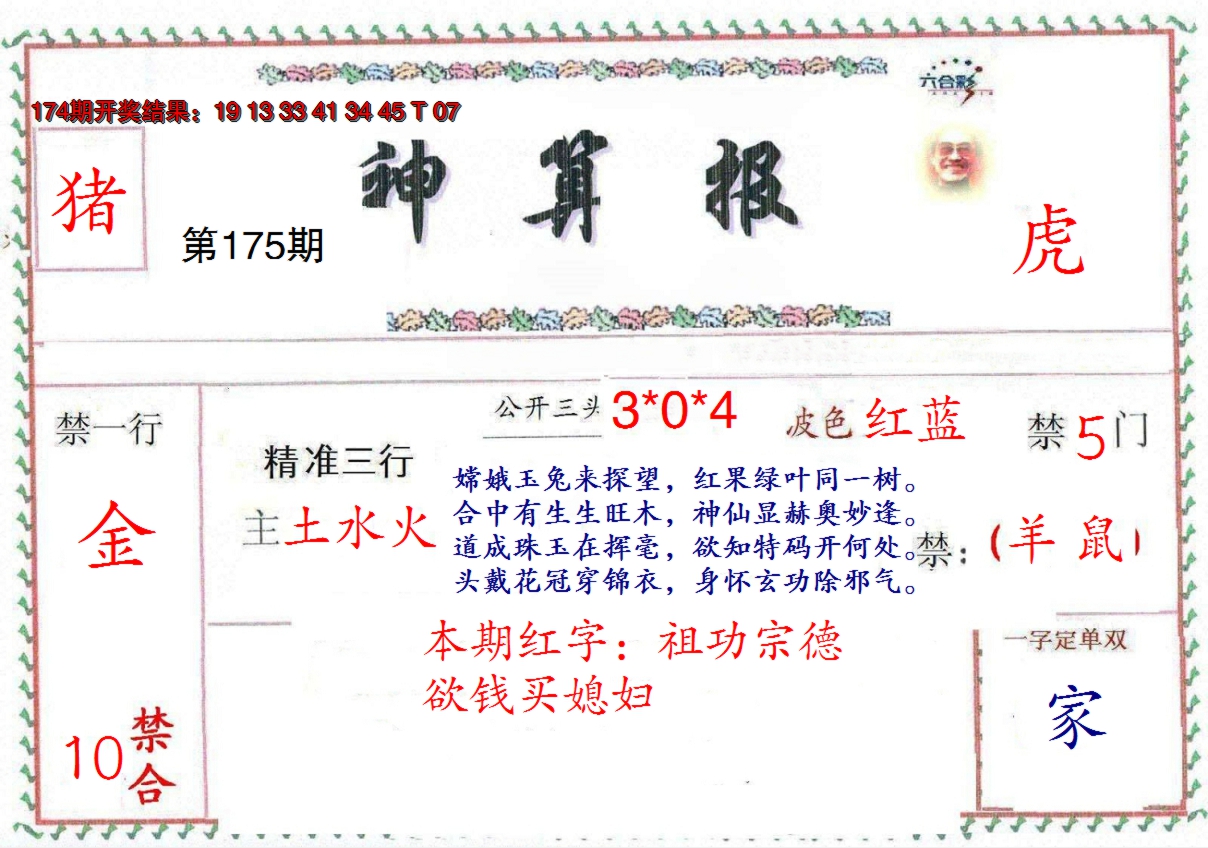 六合彩
174期开奖结果：19 13 33 41 34 45 T 07
神算报
猪
第175期
虎
公开三头 3*0*4
波色 红蓝
禁一行
禁5门
精准三行
主土水火
金
嫦娥玉兔来探望，红果绿叶同一树。
合中有生生旺木，神仙显赫奥妙逢。
道成珠玉在挥毫，欲知特码开何处。
头戴花冠穿锦衣，身怀玄功除邪气。
禁：（羊 鼠）
本期红字：祖功宗德
欲钱买媳妇
一字定单双
家
10禁合